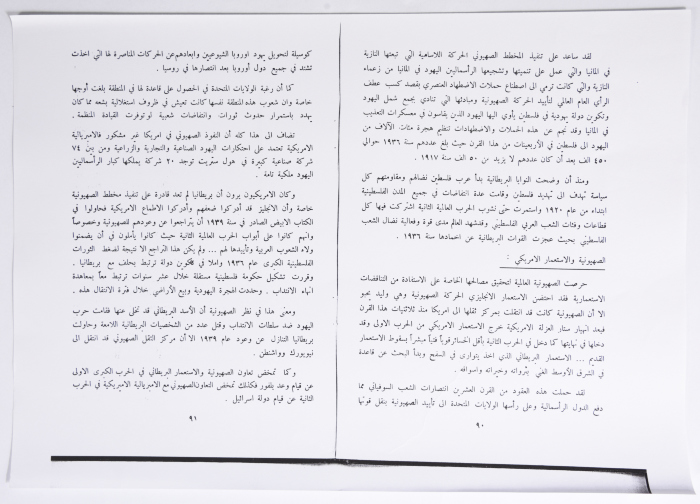 لقد ساعد على تنفيذ المخطط الصهيوني الحركة اللاسامية التي تبعتها النازية
في المانيا والتي عمل على تنميتها وتشجيعها الرأسماليين اليهود في المانيا من زعماء
النازية والتي كانت ترمي الى اصطناع حملات الاضطهاد العنصري بقصد كسب عطف
الرأي العام العالمي لتأييد الحركة الصهيونية ومبادئها التي تنادي بجمع شمل اليهود
وتكوين دولة يهودية في فلسطين يأوي اليها اليهود الذين يقاسون في معسكرات التعذيب
في المانيا وقد نجم عن هذه الحملات والاضطهادات تنظيم هجرة مئات الآلاف من
اليهود الى فلسطين في الأربعينات من هذا القرن حيث بلغ عددهم سنة ١٩٣٦ حوالي
٤٥٠ الف بعد أن كان عددهم لا يزيد عن ٥٠ الف سنة ١٩١٧ .
ومنذ أن وضحت النوايا البريطانية بدأ عرب فلسطين نضالهم ومقاومتهم كل
سياسة تهدف الى تهديد فلسطين وقامت عدة انتفاضات في جميع المدن الفلسطينية
ابتداء من عام ١٩٢٠ واستمرت حتى نشوب الحرب العالمية الثانية اشتركت فيها كل
قطاعات وفئات الشعب العربي الفلسطيني وقد شهد العالم مدى قوة وفعالية نضال الشعب
الفلسطيني بحيث عجزت القوات البريطانية عن اخمادها سنة ١٩٣٦ .
الصهيونية والاستعمار الامريكي :
حرصت الصهيونية العالمية لتحقيق مصالحها الخاصة على الاستفادة من التناقضات
الاستعمارية فقد احتضن الاستعمار الانجليزي الحركة الصهيونية وهي وليد يحبو
الا أن الصهيونية كانت قد انتقلت بمركز ثقلها الى امريكا منذ ثلاثينات هذا القرن
فبعد انهيار ستار العزلة الامريكية خرج الاستعمار الامريكي من الحرب الاولى وقد
دخلها في نهايتها كما دخل في الحرب الثانية بأقل الخسائر قوياً فتياً مبشراً بسقوط الاستعمار
القديم ... الاستعمار البريطاني الذي اخذ يتوارى في السفح وبدأ البحث عن قاعدة
في الشرق الأوسط الغني بثرواته وخيراته واسواقه .
لقد حملت هذه العقود من القرن العشرين انتصارات الشعب السوفياتي مما
دفع الدول الرأسمالية وعلى رأسها الولايات المتحدة الى تأييد الصهيونية بنقل قوتها
٩٠
كوسيلة لتحويل يهود اوروبا الشيوعيين وابعادهم عن الحركات المناصرة لها التي اخذت
تشتد في جميع دول أوروبا بعد انتصارها في روسيا .
كما أن رغبة الولايات المتحدة في الحصول على قاعدة لها في المنطقة بلغت أوجها
خاصة وان شعوب هذه المنطقة نفسها كانت تعيش في ظروف استغلالية بشعه مما كان
يهدد باستمرار حدوث ثورات وانتفاضات شعبية لو توفرت القيادة المنظمة .
تضاف الى هذا كله أن النفوذ الصهيوني في امريكا غير مشكور فالامبريالية
الامريكية تعتمد على احتكارات اليهود الصناعية والتجارية والزراعية ومن بين ٧٤
شركة صناعية كبيرة في هول ستريت توجد ٢٠ شركة يملكها كبار الرأسماليين
اليهود ملكية تامة .
وكان الامريكيون يرون أن بريطانيا لم تعد قادرة على تنفيذ مخطط الصهيونية
خاصة وأن الانجليز قد أدركوا ضعفهم وأدركوا الاطماع الامريكية فحاولوا في
الكتاب الابيض الصادر في سنة ١٩٣٩ أن يتراجعوا عن وعودهم للصهيونية وخصوصاً
وانهم كانوا على أبواب الحرب العالمية الثانية حيث كانوا يأملون في أن يضمنوا
ولاء الشعوب العربية وتأييدها لهم ... ولم يكن هذا التراجع الا نتيجة لضغط الثورات
الفلسطينية الكبرى عام ١٩٣٦ واملا في تكوين دولة ترتبط بحلف مع بريطانيا .
وقررت تشكيل حكومة فلسطينية مستقلة خلال عشر سنوات ترتبط معاً بمعاهدة
انهاء الانتداب . وحددت الهجرة اليهودية وبيع الأراضي خلال فترة الانتقال هذه .
ومعنى هذا في نظر الصهيونية أن الأسد البريطاني قد تخلى عنها فقامت حرب
اليهود ضد سلطات الانتداب وقتل عدد من الشخصيات البريطانية اللامعة وحاولت
بريطانيا التنازل عن وعود عام ١٩٣٩ الا أن مركز الثقل الصهيوني قد انتقل الى
نيويورك وواشنطن .
وكما تمخض تعاون الصهيونية والاستعمار البريطاني في الحرب الكبرى الاولى
عن قيام وعد بلفور فكذلك تمخض التعاون الصهيوني مع الامبريالية الامريكية في الحرب
الثانية عن قيام دولة اسرائيل .
٩١